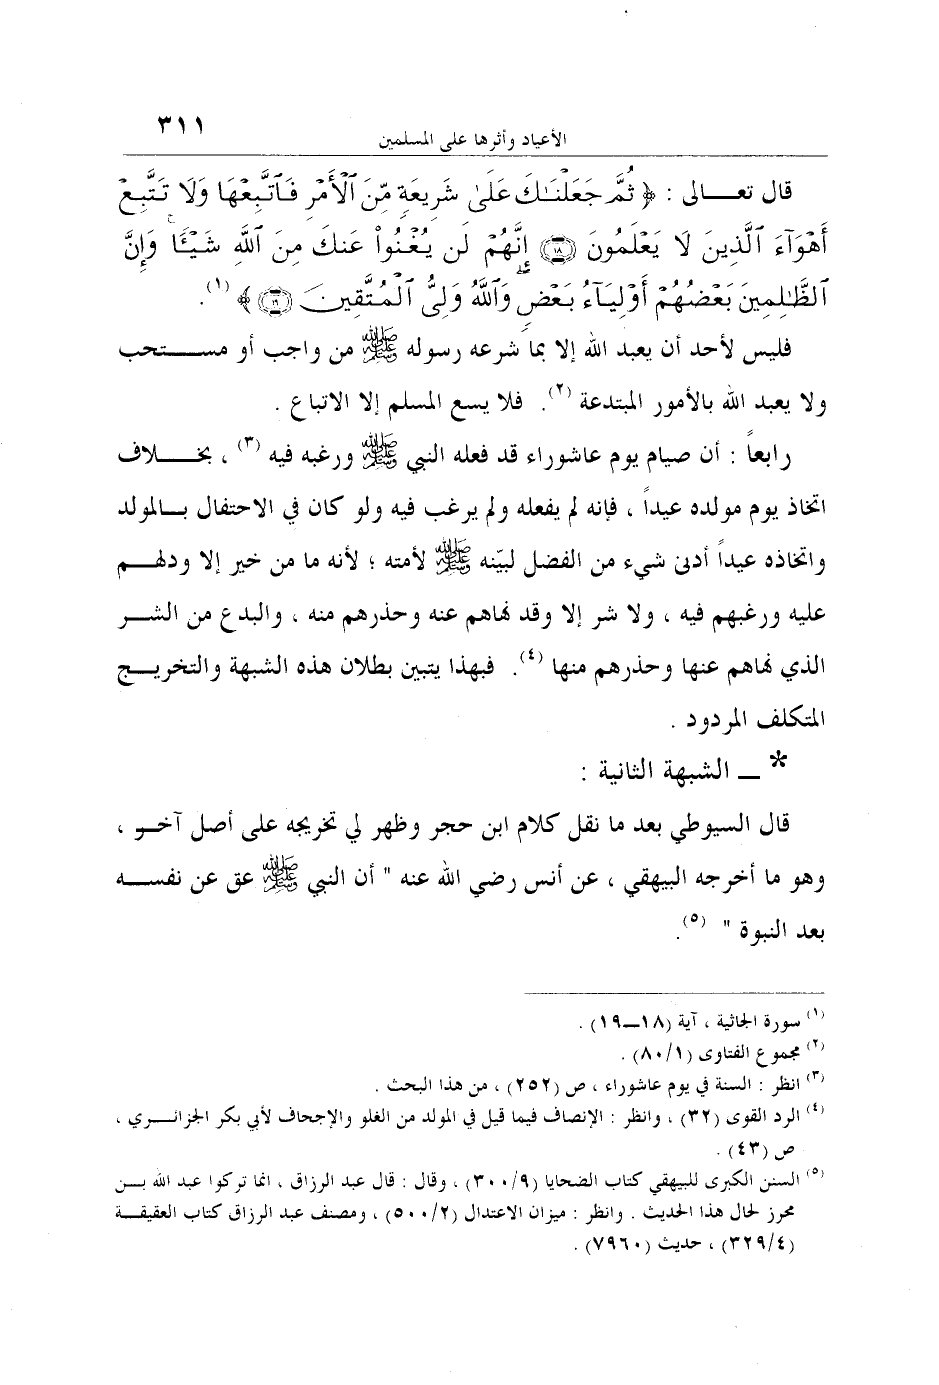 ٣١١
الأعياد وأثرها على المسلمين
قال تعــالى : ﴿ ثُمَّ جَعَلْنَٰكَ عَلَىٰ شَرِيعَةٍ مِّنَ ٱلْأَمْرِ فَٱتَّبِعْهَا وَلَا تَتَّبِعْ
أَهْوَآءَ ٱلَّذِينَ لَا يَعْلَمُونَ ۝١٨ إِنَّهُمْ لَن يُغْنُوا۟ عَنكَ مِنَ ٱللَّهِ شَيْـًٔا ۚ وَإِنَّ
ٱلظَّٰلِمِينَ بَعْضُهُمْ أَوْلِيَآءُ بَعْضٍ ۖ وَٱللَّهُ وَلِىُّ ٱلْمُتَّقِينَ ۝١٩ ﴾ (١).
فليس لأحد أن يعبد الله إلا بما شرعه رسوله ﷺ من واجب أو مستحب
ولا يعبد الله بالأمور المبتدعة (٢). فلا يسع المسلم إلا الاتباع .
رابعاً : أن صيام يوم عاشوراء قد فعله النبي ﷺ ورغبه فيه (٣) ، بخلاف
اتخاذ يوم مولده عيداً ، فإنه لم يفعله ولم يرغب فيه ولو كان في الاحتفال بالمولد
واتخاذه عيداً أدنى شيء من الفضل لبيّنه ﷺ لأمته ؛ لأنه ما من خير إلا ودلهم
عليه ورغبهم فيه ، ولا شر إلا وقد نهاهم عنه وحذرهم منه ، والبدع من الشر
الذي نهاهم عنها وحذرهم منها (٤). فبهذا يتبين بطلان هذه الشبهة والتخريج
المتكلف المردود .
* ــ الشبهة الثانية :
قال السيوطي بعد ما نقل كلام ابن حجر وظهر لي تخريجه على أصل آخر ،
وهو ما أخرجه البيهقي ، عن أنس رضي الله عنه " أن النبي ﷺ عق عن نفسه
بعد النبوة " (٥).
(١) سورة الجاثية ، آية (١٨ــ١٩) .
(٢) مجموع الفتاوى (٨٠/١) .
(٣) انظر : السنة في يوم عاشوراء ، ص (٢٥٢) ، من هذا البحث .
(٤) الرد القوى (٣٢) ، وانظر : الإنصاف فيما قيل في المولد من الغلو والإجحاف لأبي بكر الجزائري ،
ص (٤٣) .
(٥) السنن الكبرى للبيهقي كتاب الضحايا (٣٠٠/٩) ، وقال : قال عبد الرزاق ، انما تركوا عبد الله بن
محرز لحال هذا الحديث . وانظر : ميزان الاعتدال (٥٠٠/٢) ، ومصنف عبد الرزاق كتاب العقيقة
(٣٢٩/٤) ، حديث (٧٩٦٠) .